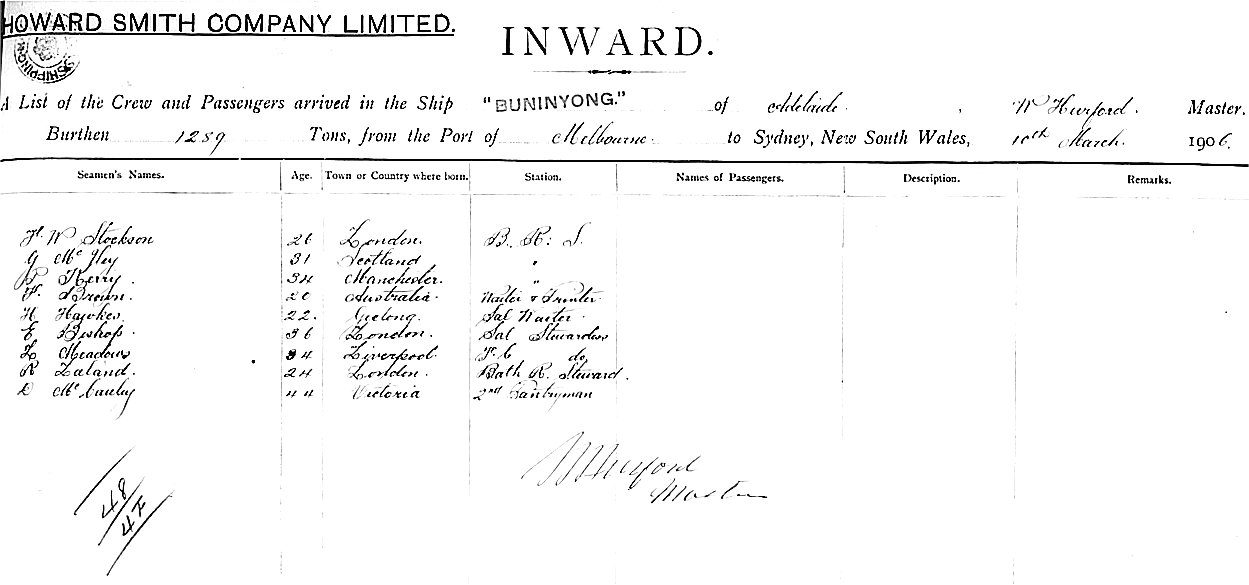 HOWARD SMITH COMPANY LIMITED.
SHIPPING
INWARD.
A List of the Crew and Passengers arrived in the Ship "BUNINYONG." of Adelaide, W Hurford. Master.
Burthen 1289 Tons, from the Port of Melbourne to Sydney, New South Wales, 10th March. 1906.
Seamen's Names. Age. Town or Country where born. Station. Names of Passengers. Description. Remarks.
F. W Stockson 26 London. B. R. S.
G Mc 31 Scotland "
P Kerry. 34 Manchester. "
F. Brown. 20 Australia. Waiter & Printer.
H Hawkes 22. Geelong. Sal Waiter.
E Bishop. 36 London. Sal Stewardess
L Meadows 34 Liverpool F. C do
R Zealand. 24 London. Bath R. Steward.
D McCauley 44 Victoria 2nd Pantryman
W Hurford
Master
48/47